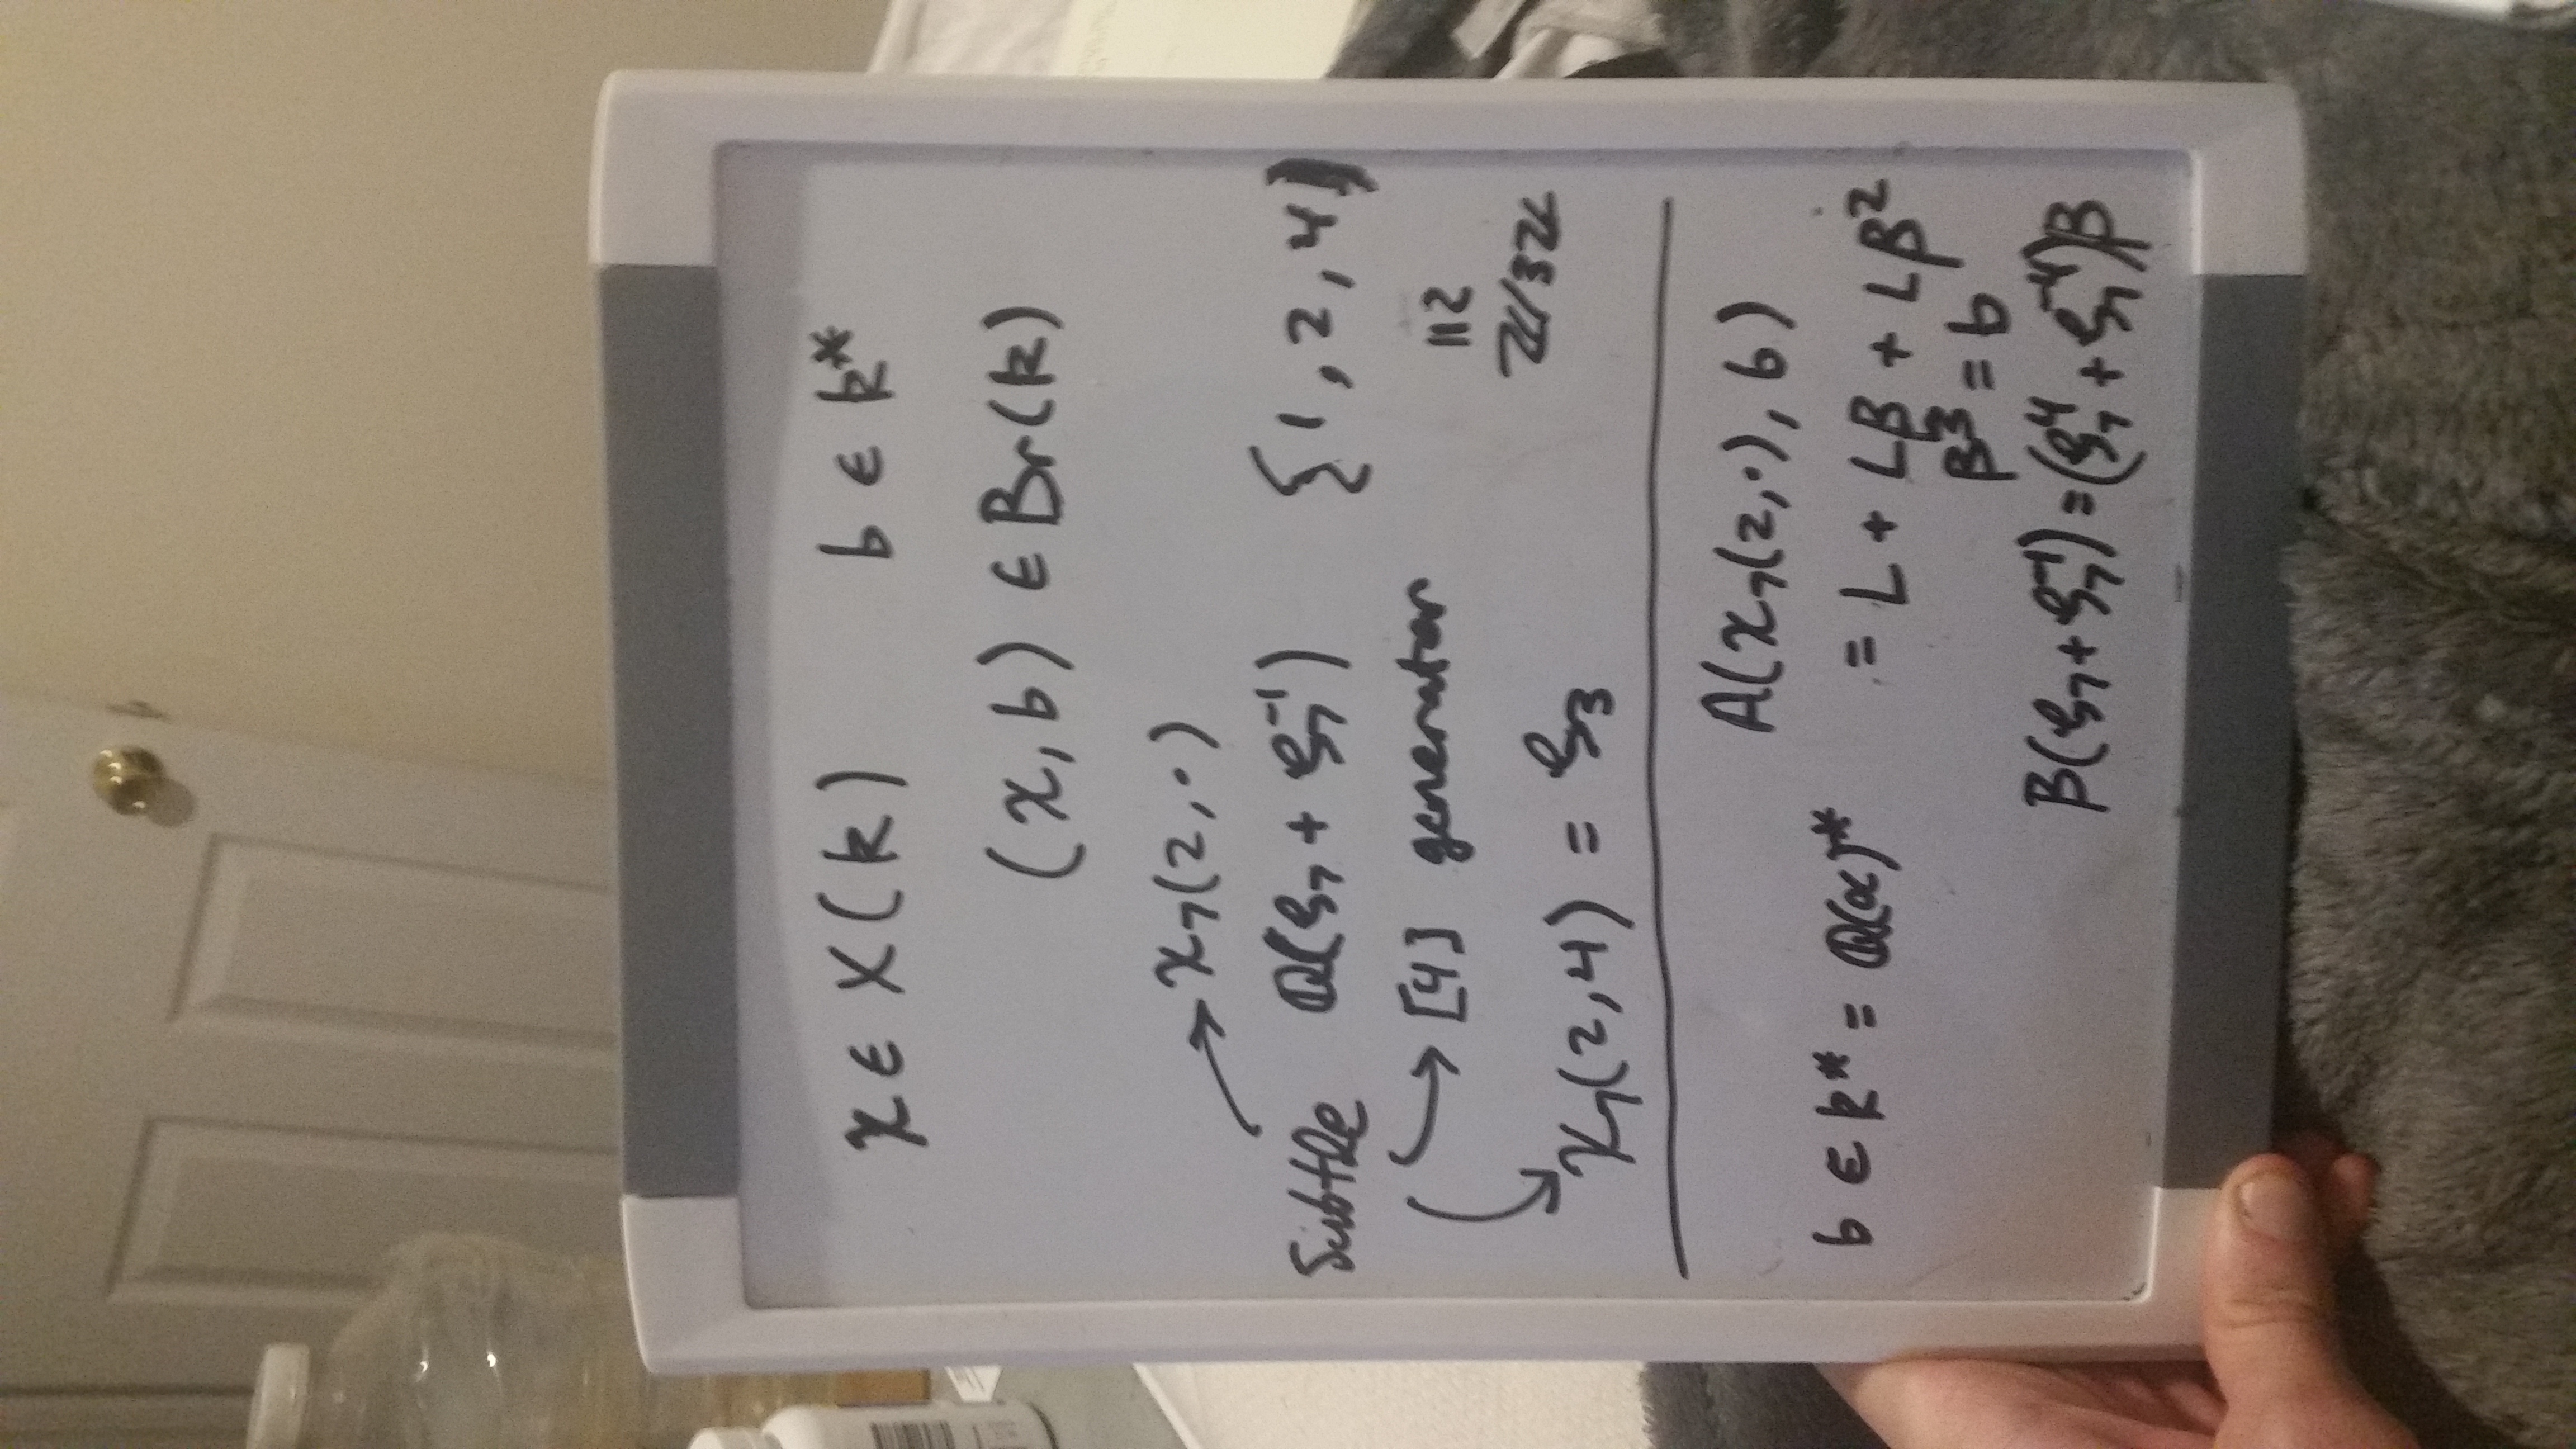 χ ∈ X(k) b ∈ k*
(χ, b) ∈ Br(k)
χ₇(2,·)
Subtle ℚ(ζ₇ + ζ₇⁻¹) {1, 2, 4}
[4] generator ≀≀
ℤ/3ℤ
χ₇(2,4) = ζ₃
A(χ₇(2,·), b)
b ∈ k* = ℚ(α)* = L + Lβ + Lβ²
β³ = b
β(ζ₇ + ζ₇⁻¹) = (ζ₇⁴ + ζ₇⁻⁴)β